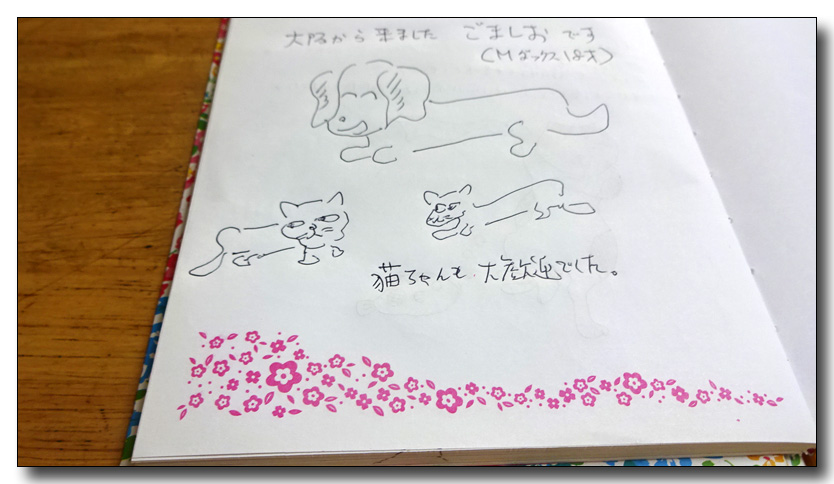 大阪から来ました ごましお です
(Mダックス 18才)
猫ちゃんも 大歓迎でした。